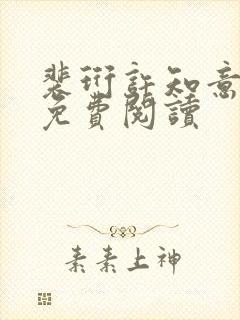 裴衍許知意
免費閱讀
素素上神